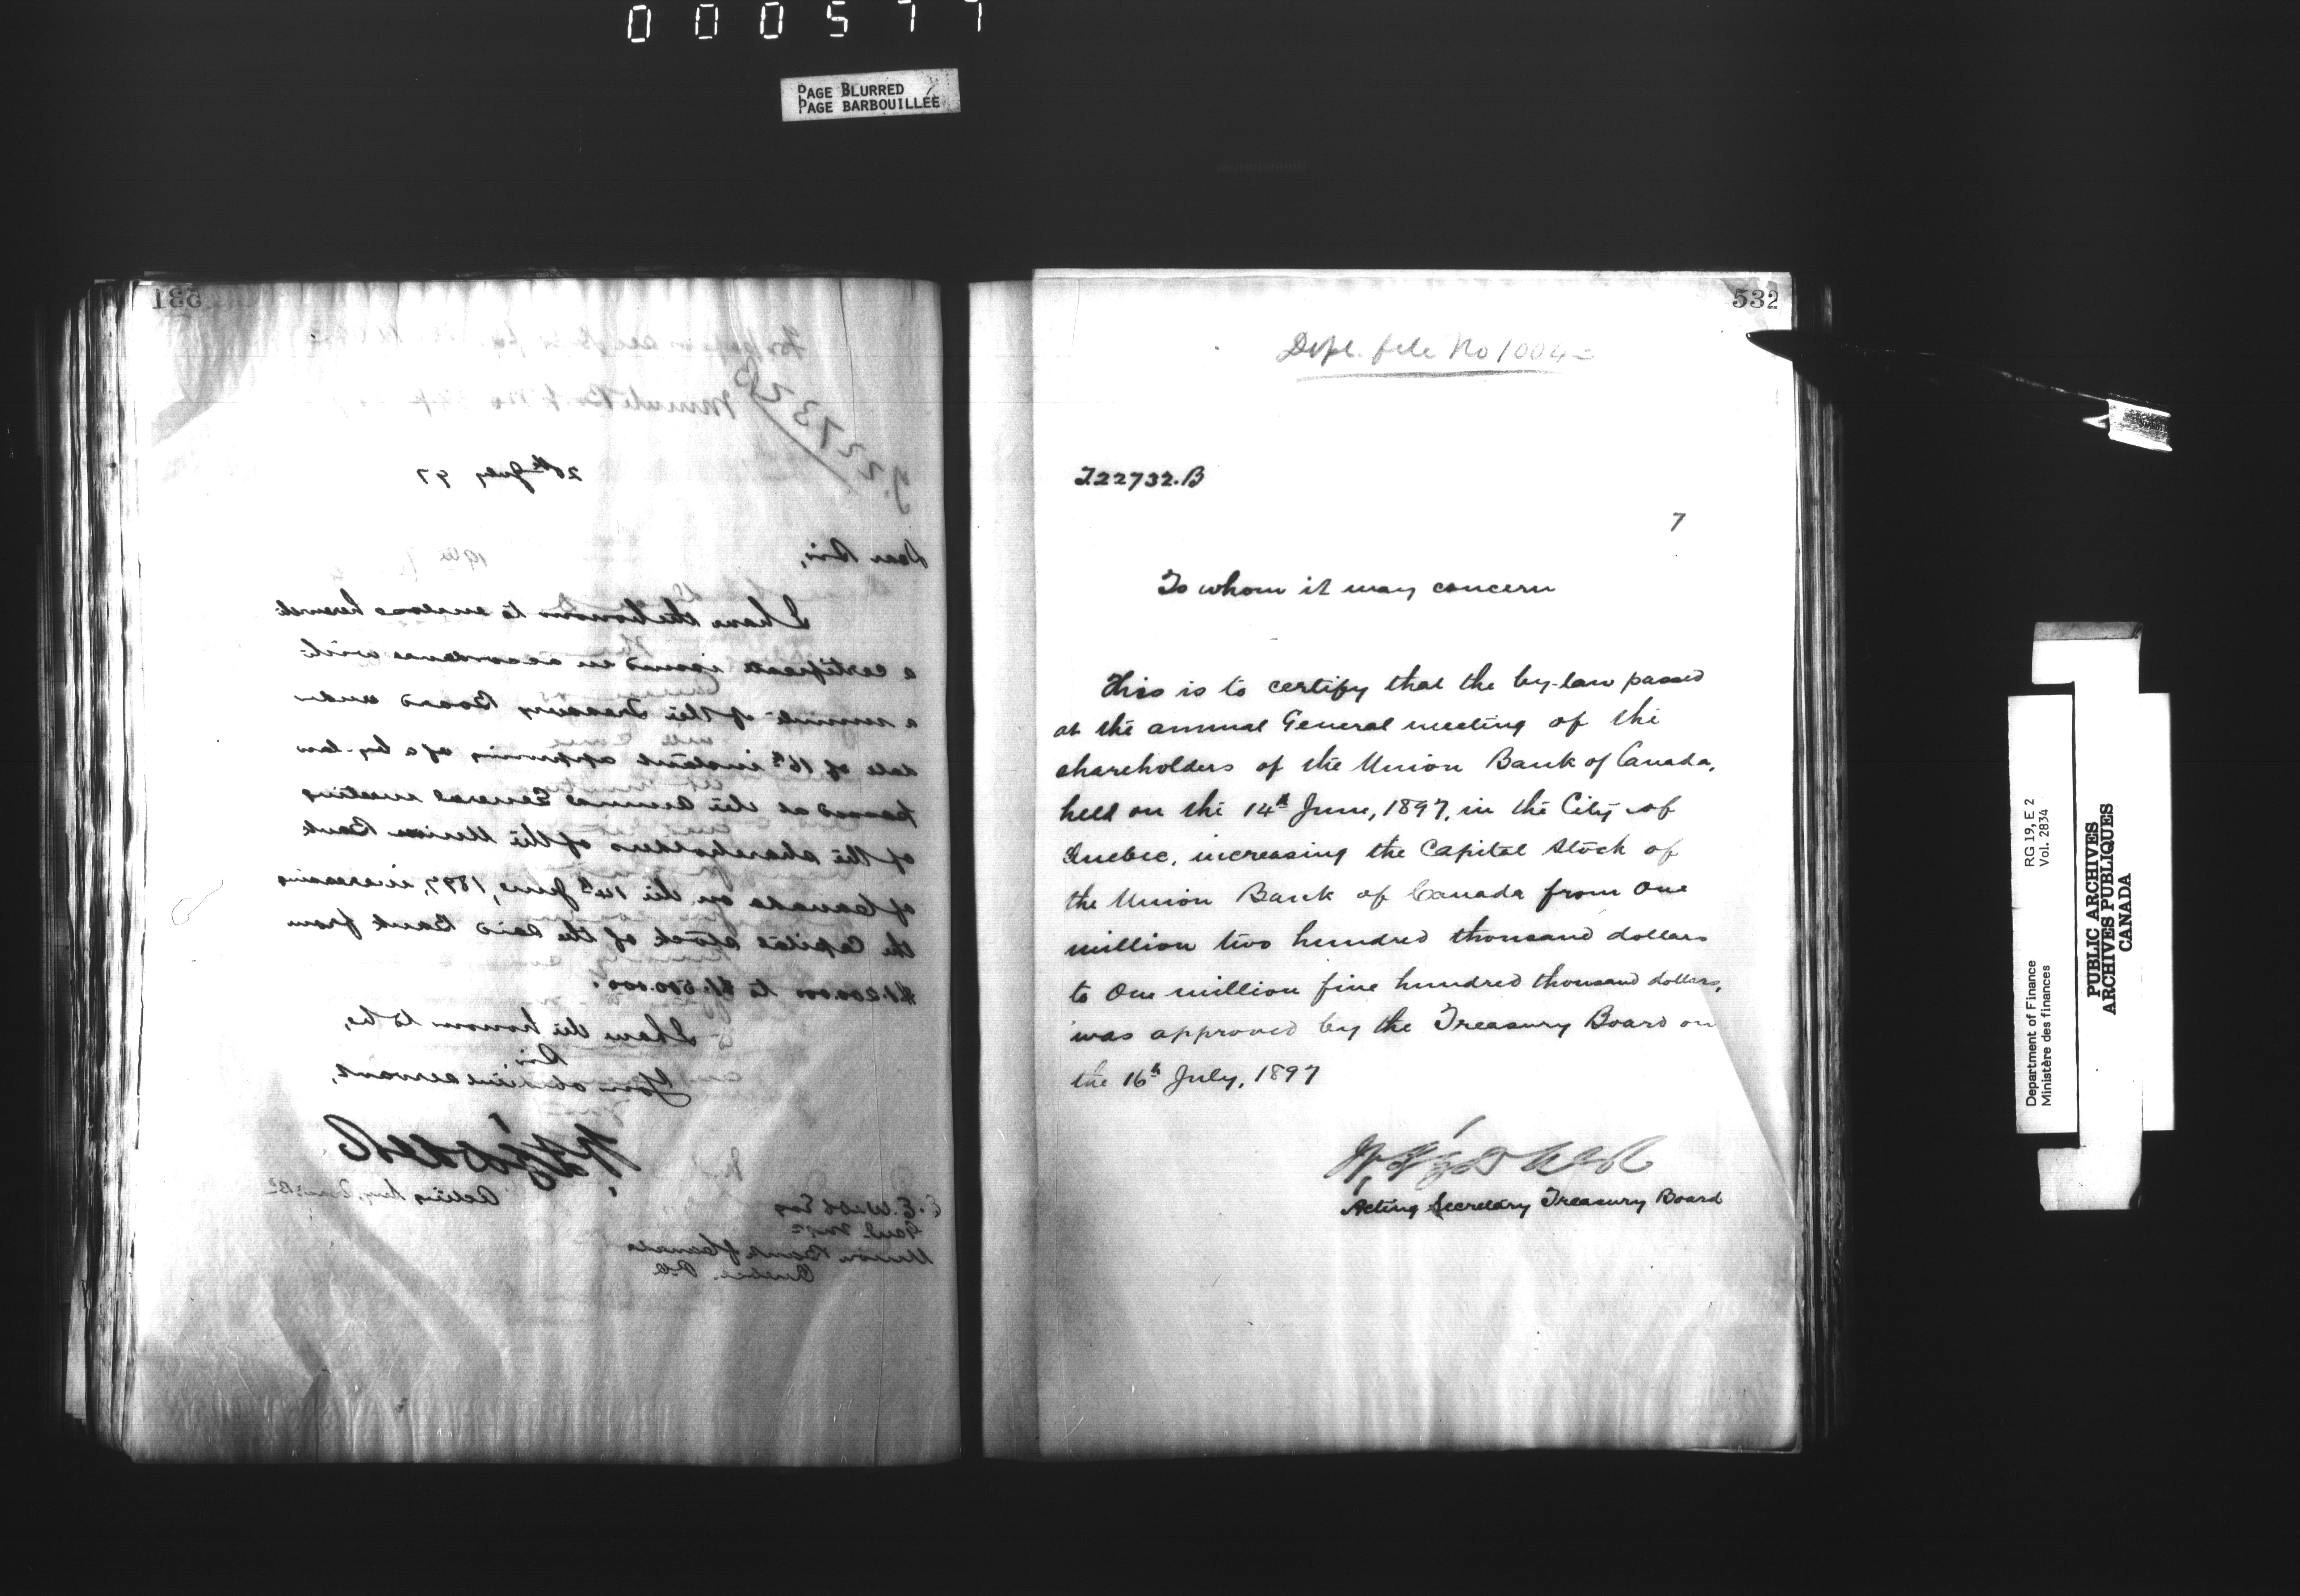 000577
PAGE BLURRED
PAGE BARBOUILLÉE
531
J.22732B
20th July 97
Dear Sir,
I have the honour to enclose herewith
a certificate issued in accordance with
a minute of the Treasury Board under
date of 16th instant approving of a by-law
passed at the Annual General meeting
of the shareholders of the Union Bank
of Canada on the 14th June, 1897, increasing
the Capital stock of the said Bank from
$1.200.000 to $1.500.000.
I have the honour to be,
Sir
Your obedient servant,
Acting Secy
E. E. Webb Esq
Genl. Mgr
Union Bank of Canada
Quebec. P.Q
532
Dept. file No 1004
J.22732.B
7
To whom it may concern
This is to certify that the by-law passed
at the annual General meeting of the
shareholders of the Union Bank of Canada,
held on the 14th June, 1897, in the City of
Quebec, increasing the Capital Stock of
the Union Bank of Canada from One
million two hundred thousand dollars
to One million five hundred thousand dollars,
was approved by the Treasury Board on
the 16th July, 1897
Acting Secretary Treasury Board
Department of Finance RG 19, E 2
Ministère des finances Vol. 2834
PUBLIC ARCHIVES
ARCHIVES PUBLIQUES
CANADA